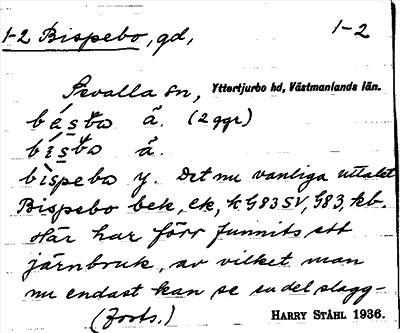 1-2 Bispebo, gd, 1-2
Svalla sn, Yttertjurbo hd, Västmanlands län.
bás̱bo ä. (2 ggr)
bís̱bo ä.
bìspebo y. Det nu vanliga uttalet
Bispebo bek, ek, k G 83 SV, G 83, kb.
Här har förr funnits ett
järnbruk, av vilket man
nu endast kan se en del slagg-
(Forts.) HARRY STÅHL 1936.